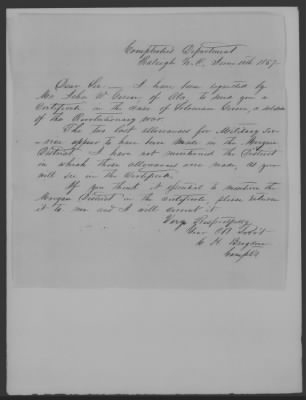 Comptroller's Department
Raleigh N.C. June 10th 1857
Dear Sir — I have been requested by
Mr. John W. Owen, of Ala, to send you a
Certificate in the case of Solomon Owen, a soldier
of the Revolutionary war.
The two last allowances for Military Ser-
-vice appear to have been made in the Morgan
District. I have not mentioned the District
in which those allowances were made, as you
will see in the Certificate.
If you think it essential to mention the
Morgan District in the certificate, please return
it to me and I will correct it
Very Respectfully
Your Obt Servt
Compt